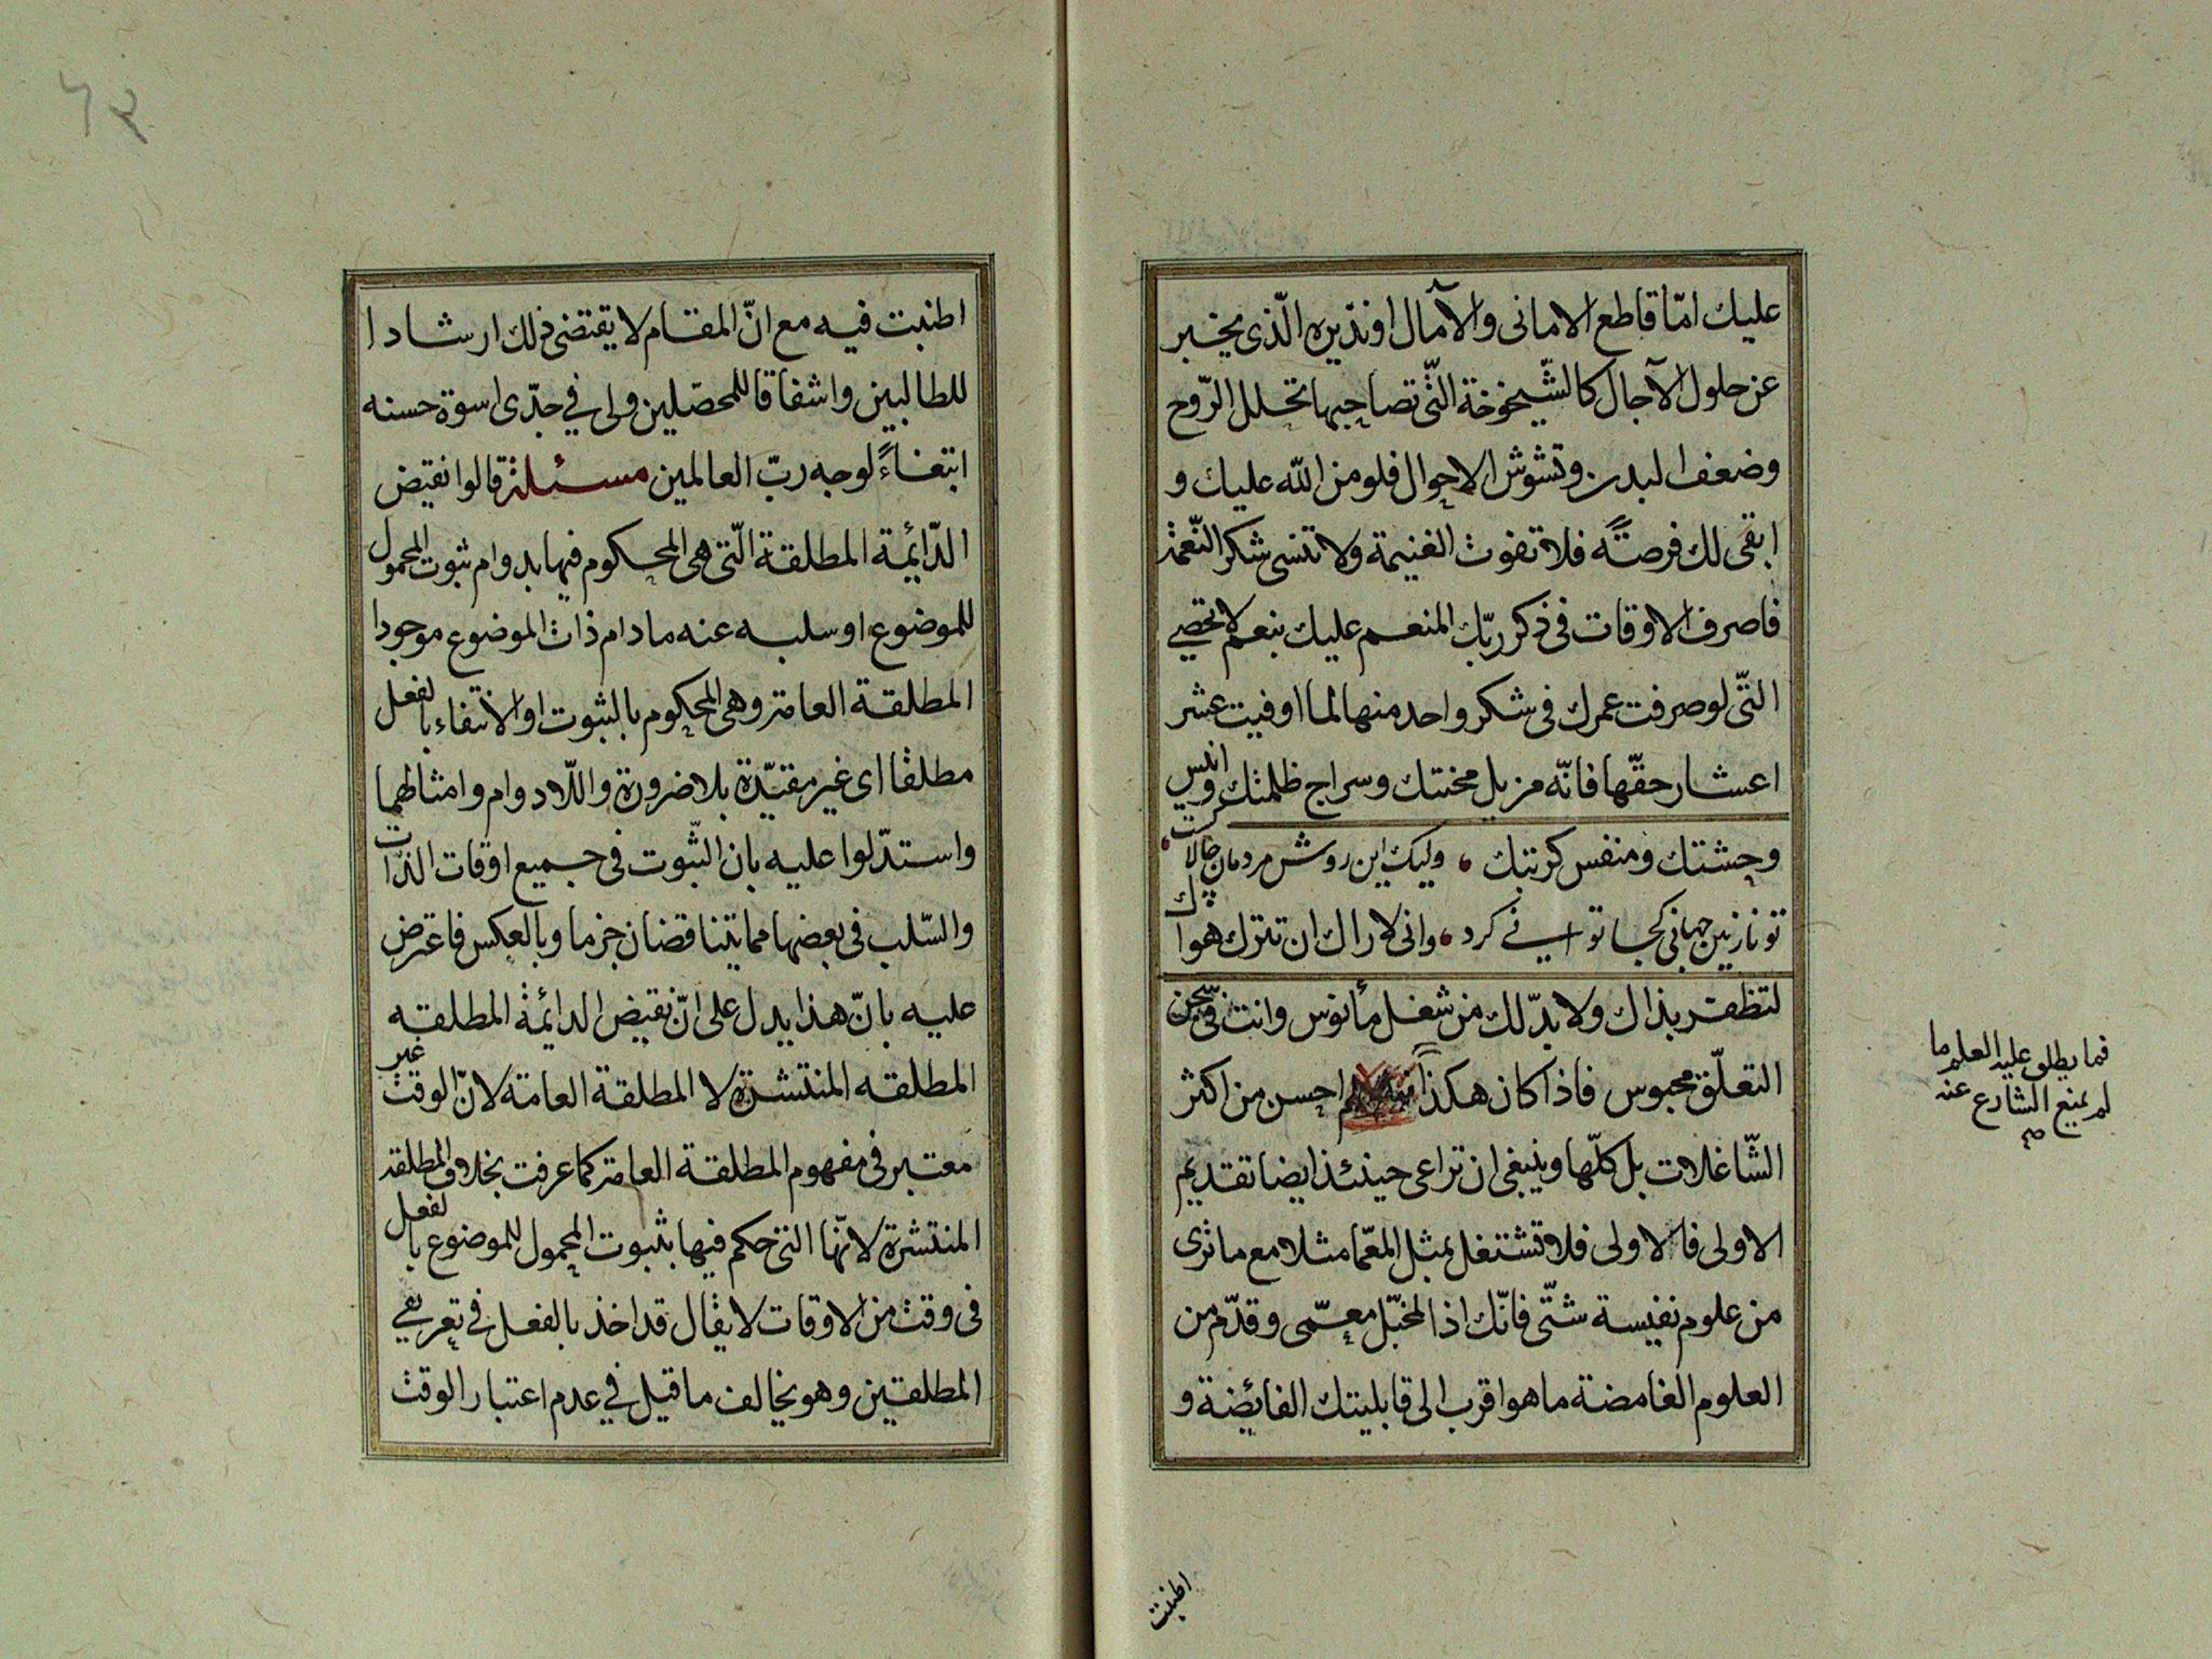 عليك امّا قاطع الامانى والآمال او نذيره الّذى يخبر
عن حلول الآجال كالشّيخوخة الّتى تصاحبها تخلل الرّوح
وضعف البدن وتشوش الاحوال فلو منّ الله عليك و
ابقى لك فرصتًه فلا تفوت الغنيمة ولا تنسى شكر النّعمة
فاصرف الاوقات فى ذكر ربّك المنعم عليك بنعم لا تحصى
التّى لو صرفت عمرك فى شكر واحد منها لما اوفيت عشر
اعشار حقّها فانّه مزيل محنتك وسراج ظلمتك وانيس
وحشتك ومنفس كربتك ، وليك اين روش مردمان چالاكست ،
تو نازنين جهانى كجا توانى كرد ، وانى لاراك ان تترك هواك
لتظفر بذاك ولا بدّ لك من شغل مأنوس وانت فى سجن
التعلّق محبوس فاذا كان هكذا احسن من اكثر
الشّاغلات بل كلّها وينبغى ان تراعى حينئذ ايضا تقديم
الاولى فالاولى فلا تشتغل بمثل المعّما مثلا مع ما ترى
من علوم نفيسة شتّى فانّك اذا لمخبّل معمّى وقدّم من
العلوم الغامضة ما هو اقرب الى قابليتك الفائضة و
فما يطلق عليه العلم ما
لم يمنع الشارع عنه
اطنبت
۶۳
اطنبت فيه مع انّ المقام لا يقتضى ذلك ارشادا
للطالبين واشفاقا للمحصّلين ولى في جدّى اسوة حسنه
ابتغاءً لوجه ربّ العالمين مسئلة قالوا نقيض
الدّائمة المطلقة الّتى هى المحكوم فيها بدوام ثبوت المحمول
للموضوع او سلبه عنه ما دام ذات الموضوع موجودا
المطلقة العامة وهى المحكوم بالثبوت او الانتفاء بالفعل
مطلقا اى غير مقتيّدة بلا ضرورة واللّا دوام وامثالهما
واستدّلوا عليه بان الثّبوت فى جميع اوقات الذّات
والسّلب فى بعضها مما يتناقضان جزما وبالعكس فاعترض
عليه بانّ هذا يدل على انّ نقيض الدائمة المطلقه
المطلقه المنتشرة لا المطلقة العامة لانّ الوقت غير
معتبر فى مفهوم المطلقة العامة كما عرفت بخلاف المطلقة
المنتشرة لانّها التى حكم فيها بثبوت المحمول للموضوع بالفعل
فى وقت من الاوقات لا يقال قد اخذ بالفعل فى تعريفي
المطلقتين وهو يخالف ما قيل في عدم اعتبار الوقت